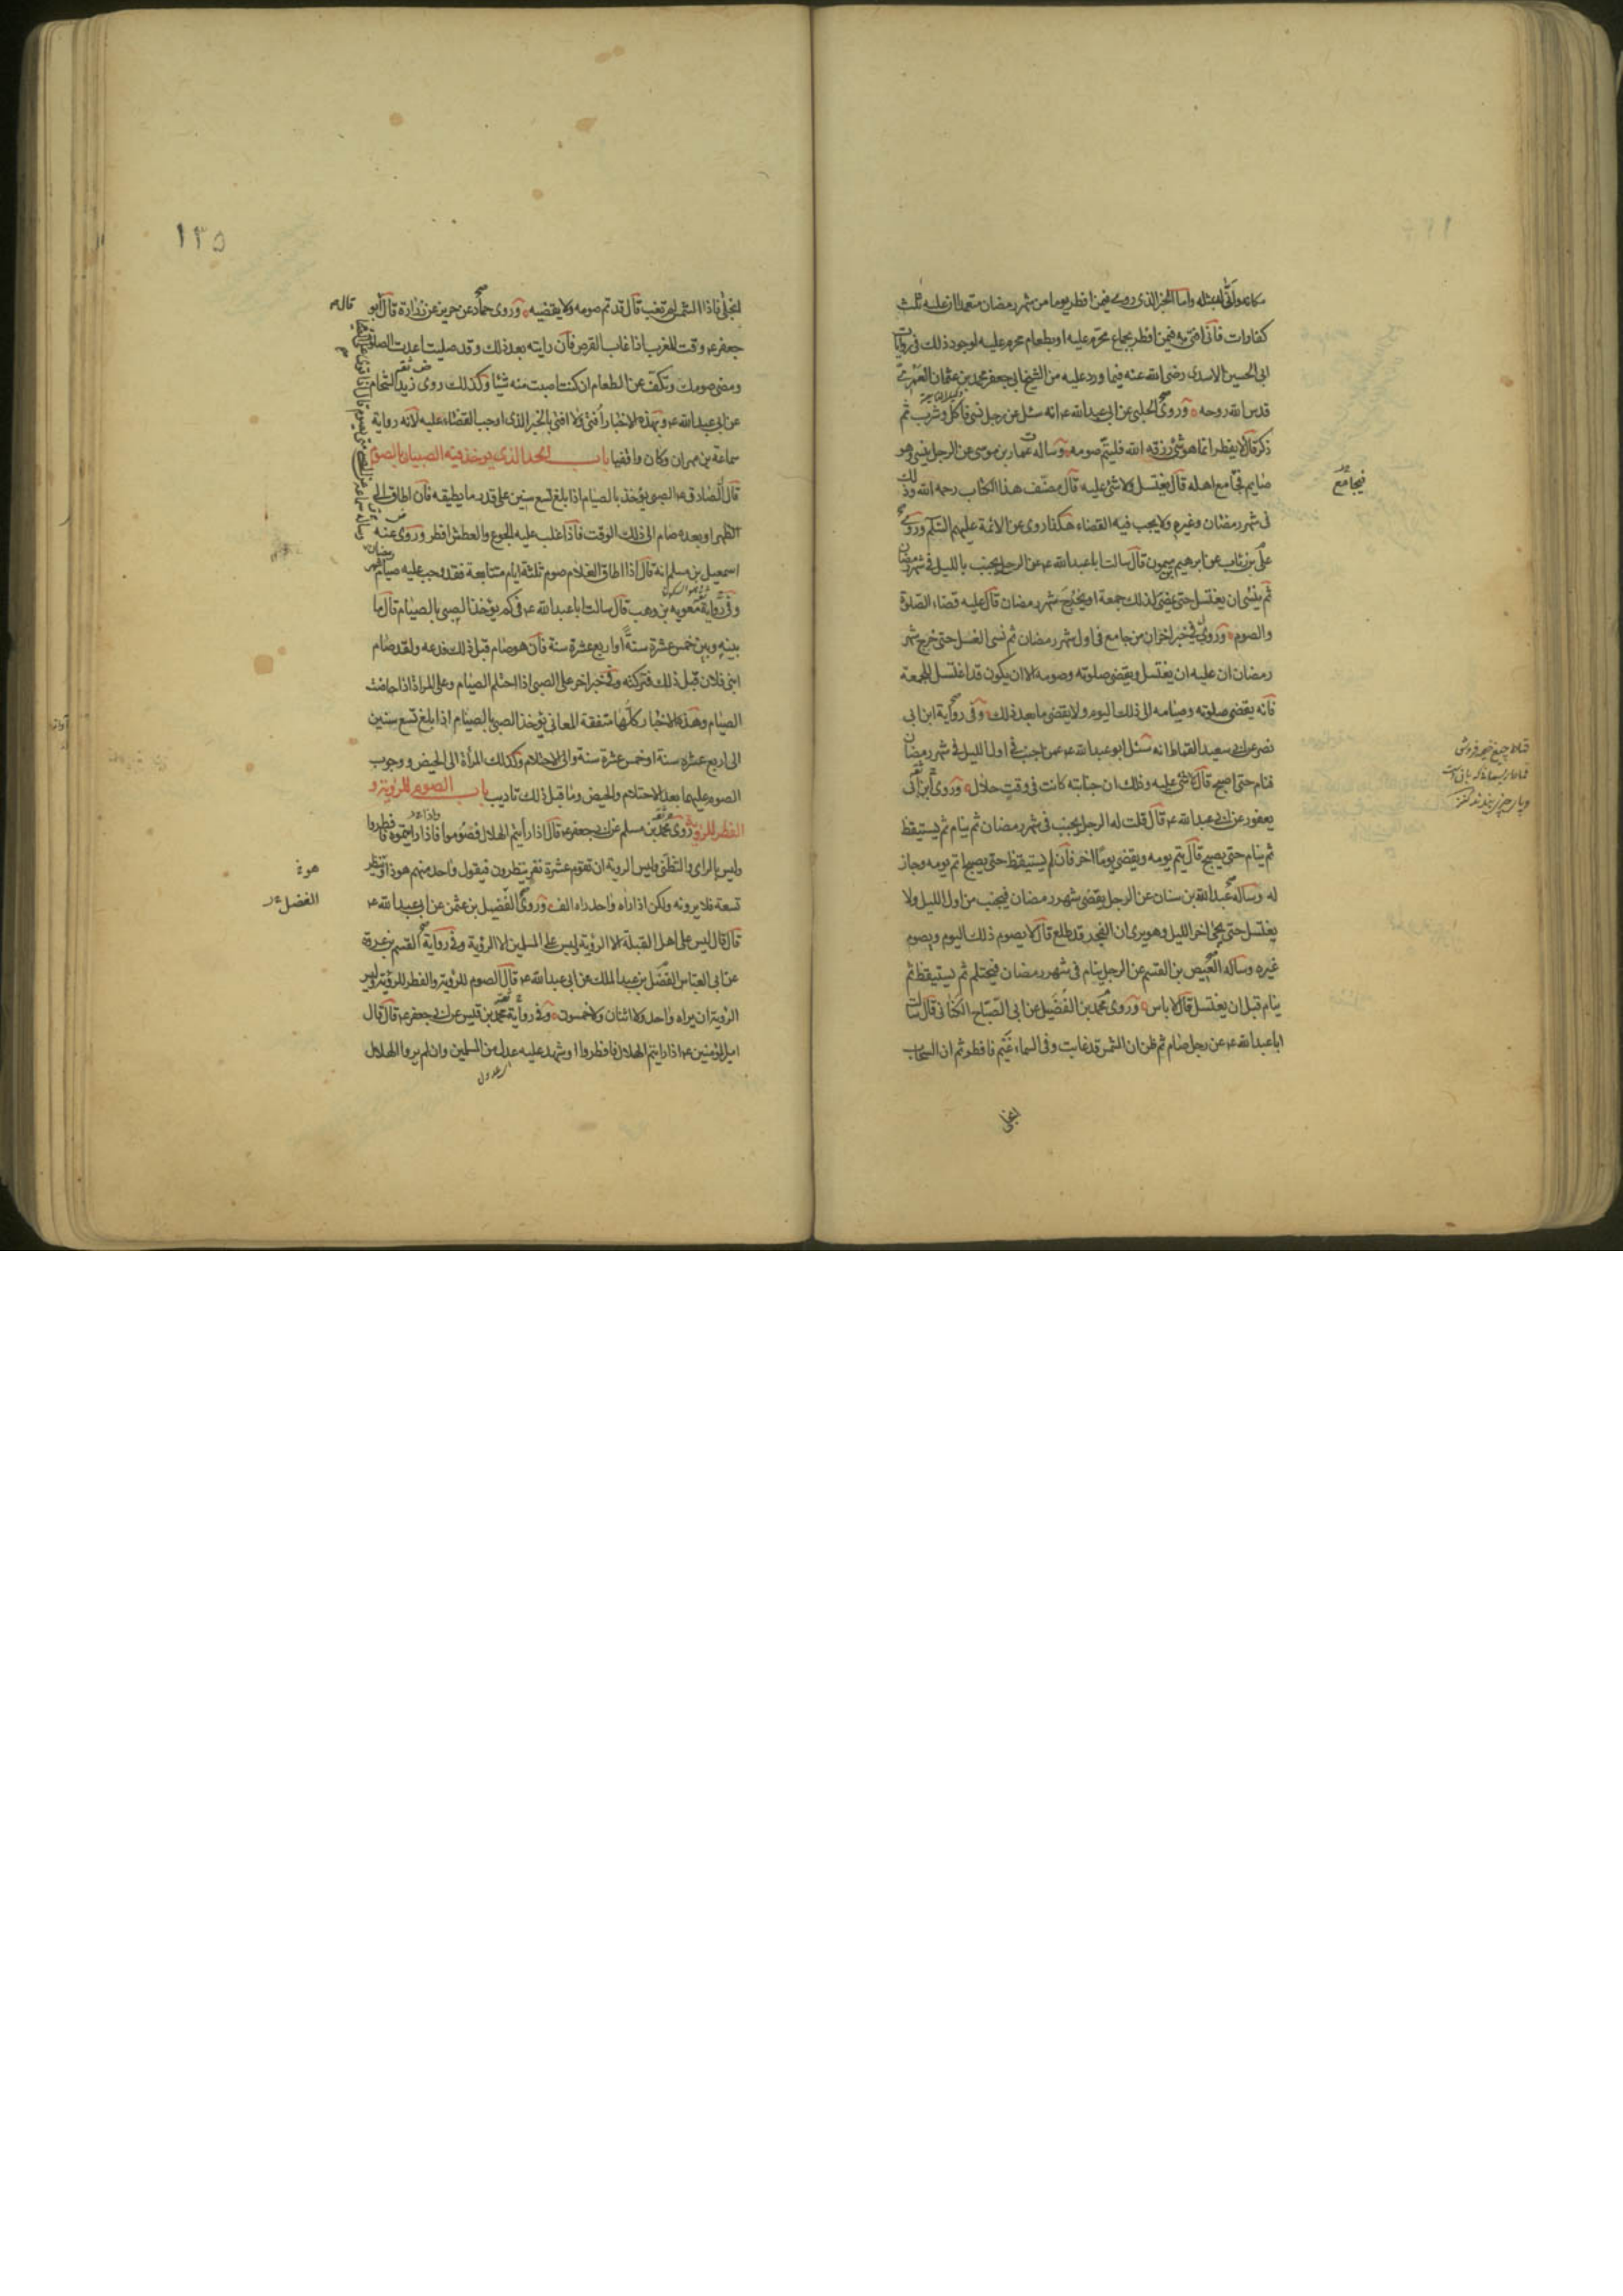 مكانه وانى له بمثله واما الخبر الذى روى فيمن افطر يوما من شهر رمضان متعمدا ان عليه ثلث
كفارات فانى افتى به فيمن افطر بجماع محرم عليه او بطعام محرم عليه لوجود ذلك فى روايات
ابى الحسين الاسدى رضى الله عنه فيما ورد عليه من الشيخ ابى جعفر محمد بن عثمان العمرى
قدس الله روحه وروى الحلبى عن ابى عبد الله ع انه سئل عن رجل نسى فاكل وشرب ثم
ذكر قال لا يفطر انما هو شئ رزقه الله فليتم صومه وساله عمار بن موسى عن الرجل ينسى وهو
صايم فجامع اهله قال يغتسل ولا شئ عليه قال مصنف هذا الكتاب رحمه الله وذلك
فى شهر رمضان وغيره ولا يجب فيه القضاء هكذا روى عن الائمة عليهم السلم وروى
على بن رئاب عن ابرهيم بن ميمون قال سالت ابا عبد الله ع عن الرجل يجنب بالليل فى شهر رمضان
ثم ينسى ان يغتسل حتى يمضى لذلك جمعة او يخرج شهر رمضان قال عليه قضاء الصلوة
والصوم وروى فى خبر اخر ان من جامع فى اول شهر رمضان ثم نسى الغسل حتى خرج شهر
رمضان ان عليه ان يغتسل ويقضى صلوته وصومه الا ان يكون قد اغتسل للجمعة
فانه يقضى صلوته وصيامه الى ذلك اليوم ولا يقضى ما بعد ذلك وفى رواية ابن ابى
نصر عن ابى سعيد القماط انه سئل ابو عبد الله ع عمن اجنب فى اول الليل فى شهر رمضان
فنام حتى اصبح قال لا شئ عليه وذلك ان جنابته كانت فى وقت حلال وروى ابن ابى
يعفور عن ابى عبد الله ع قال قلت له الرجل يجنب فى شهر رمضان ثم ينام ثم يستيقظ
ثم ينام حتى يصبح قال يتم يومه ويقضى يوما اخر فان لم يستيقظ حتى يصبح اتم يومه وجاز
له وساله عبد الله بن سنان عن الرجل يقضى شهر رمضان فيجنب من اول الليل ولا
يغتسل حتى يجئ اخر الليل وهو يرى ان الفجر قد طلع قال لا يصوم ذلك اليوم ويصوم
غيره وساله العيص بن القسم عن الرجل ينام فى شهر رمضان فيحتلم ثم يستيقظ ثم
ينام قبل ان يغتسل قال لا باس وروى محمد بن الفضيل عن ابى الصباح الكنانى قال سالت
ابا عبد الله ع عن رجل صام ثم ظن ان الشمس قد غابت وفى السماء غيم فافطر ثم ان السحاب
انجلى
فيجامع
١٣٥
انجلى فاذا الشمس لم تغب قال قد تم صومه ولا يقضيه وروى حماد عن حريز عن زرارة قال قال ابو
جعفر ع وقت المغرب اذا غاب القرص فان رايته بعد ذلك وقد صليت اعدت الصلوة
ومضى صومك وتكف عن الطعام ان كنت اصبت منه شيئا وكذلك روى زيد الشحام
عن ابى عبد الله ع وبهذه الاخبار افتى ولا افتى بالخبر الذى اوجب القضاء عليه لانه رواية
سماعة بن مهران وكان واقفيا باب الحد الذى يوخذ فيه الصبيان بالصوم
قال الصادق ع الصبى يؤخذ بالصيام اذا بلغ تسع سنين على قدر ما يطيقه فان اطاق الى
الظهر او بعده صام الى ذلك الوقت فاذا غلب عليه الجوع والعطش افطر وروى عنه
اسمعيل بن مسلم انه قال اذا اطاق الغلام صوم ثلثة ايام متتابعة فقد وجب عليه صيام شهر رمضان
وفى رواية معوية بن وهب قال سالت ابا عبد الله ع فى كم يؤخذ الصبى بالصيام قال ما
بينه وبين خمس عشرة سنة او اربع عشرة سنة فان هو صام قبل ذلك فدعه ولقد صام
ابنى فلان قبل ذلك فتركته وفى خبر اخر على الصبى اذا احتلم الصيام وعلى المراة اذا حاضت
الصيام وهذه الاخبار كلها متفقة المعانى يؤخذ الصبى بالصيام اذا بلغ تسع سنين
الى اربع عشرة سنة او خمس عشرة سنة والى الاحتلام وكذلك المرأة الى الحيض ووجوب
الصوم عليهما بعد الاحتلام والحيض وما قبل ذلك تاديب باب الصوم للرؤية و
الفطر للرؤية روى محمد بن مسلم عن ابى جعفر ع قال اذا رأيتم الهلال فصوموا فاذا رايتموه فافطروا
وليس بالراى والتظنى وليس الروية ان تقوم عشرة نفر ينظرون فيقول واحد منهم هوذا وينظر
تسعة فلا يرونه ولكن اذا راه واحد راه الف وروى الفضيل بن عثمن عن ابى عبد الله ع
قال قال ليس على اهل القبلة الا الرؤية ليس على المسلمين الا الرؤية وفى رواية القسم بن عروة
عن ابى العباس الفضل بن عبد الملك عن ابى عبد الله ع قال الصوم للرؤية والفطر للرؤية وليس
الرؤية ان يراه واحد ولا اثنان ولا خمسون وفى رواية محمد بن قيس عن ابى جعفر ع قال قال
امير المؤمنين ع اذا رايتم الهلال فافطروا او شهد عليه عدل من المسلمين وان لم يروا الهلال
هوذ
الفضل